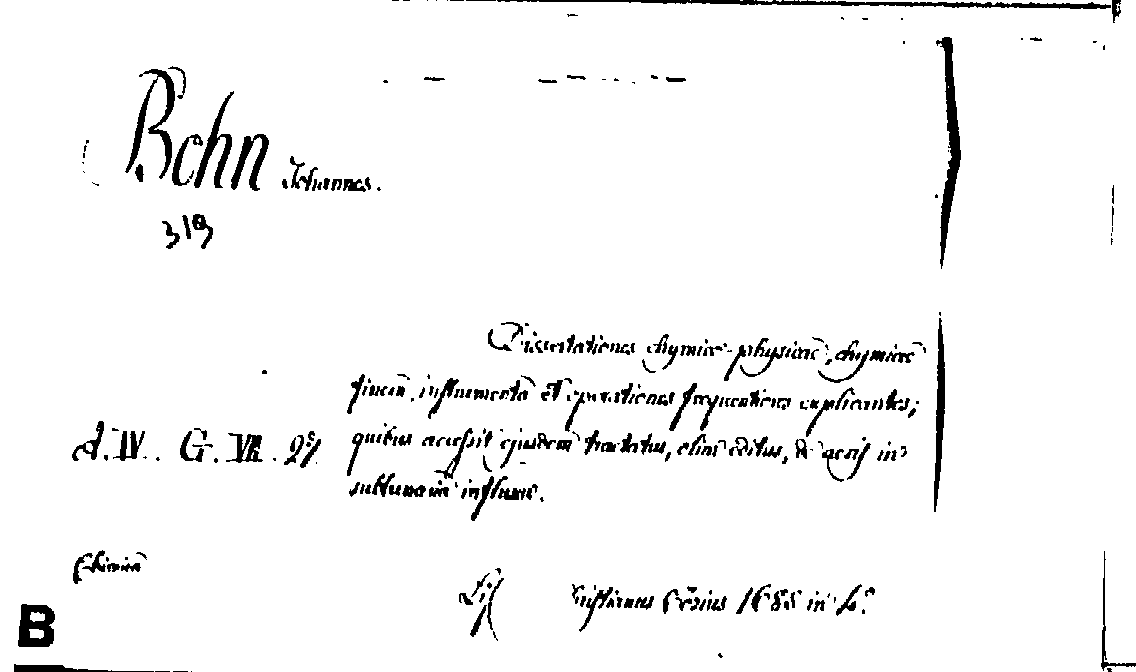 Bohn Johannes.
319
Dissertationes chymico-physicae, chymiae
finem, instrumenta et operationes frequentiores explicantes;
A. IV. G. VII. 27 quibus accessit ejusdem tractatus, olim editus, de aeris in
sublunaria influxu.
Chimica
B
1685 in 4.°